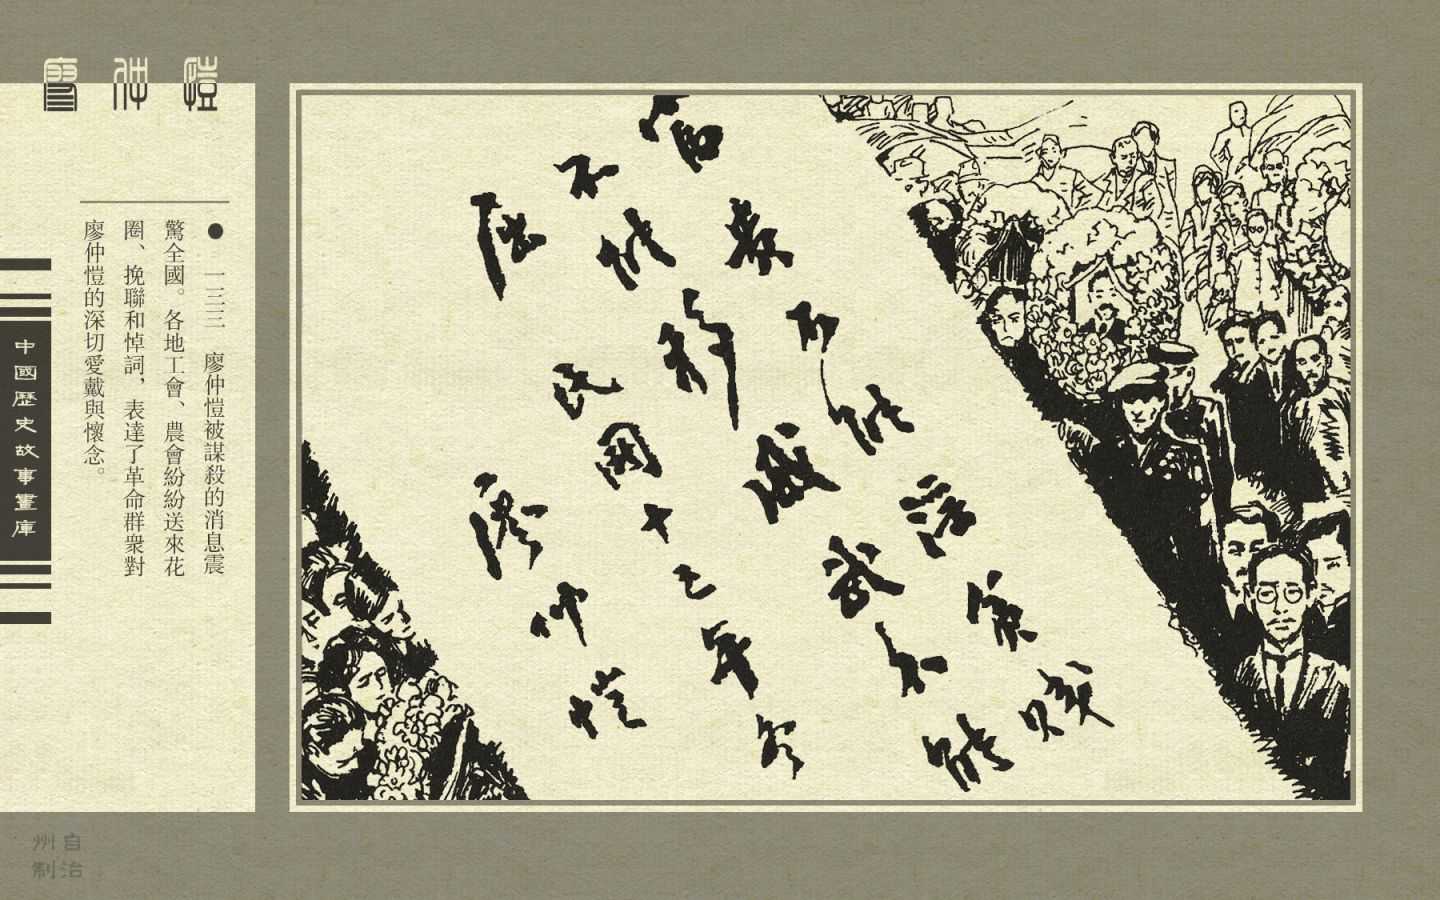 廖仲愷
● 一三三　廖仲愷被謀殺的消息震
驚全國。各地工會、農會紛紛送來花
圈、挽聯和悼詞，表達了革命群衆對
廖仲愷的深切愛戴與懷念。
中國歷史故事畫庫
富貴不能淫貧賤
不能移威武不能
屈
民國十二年冬
廖仲愷
自治
州制